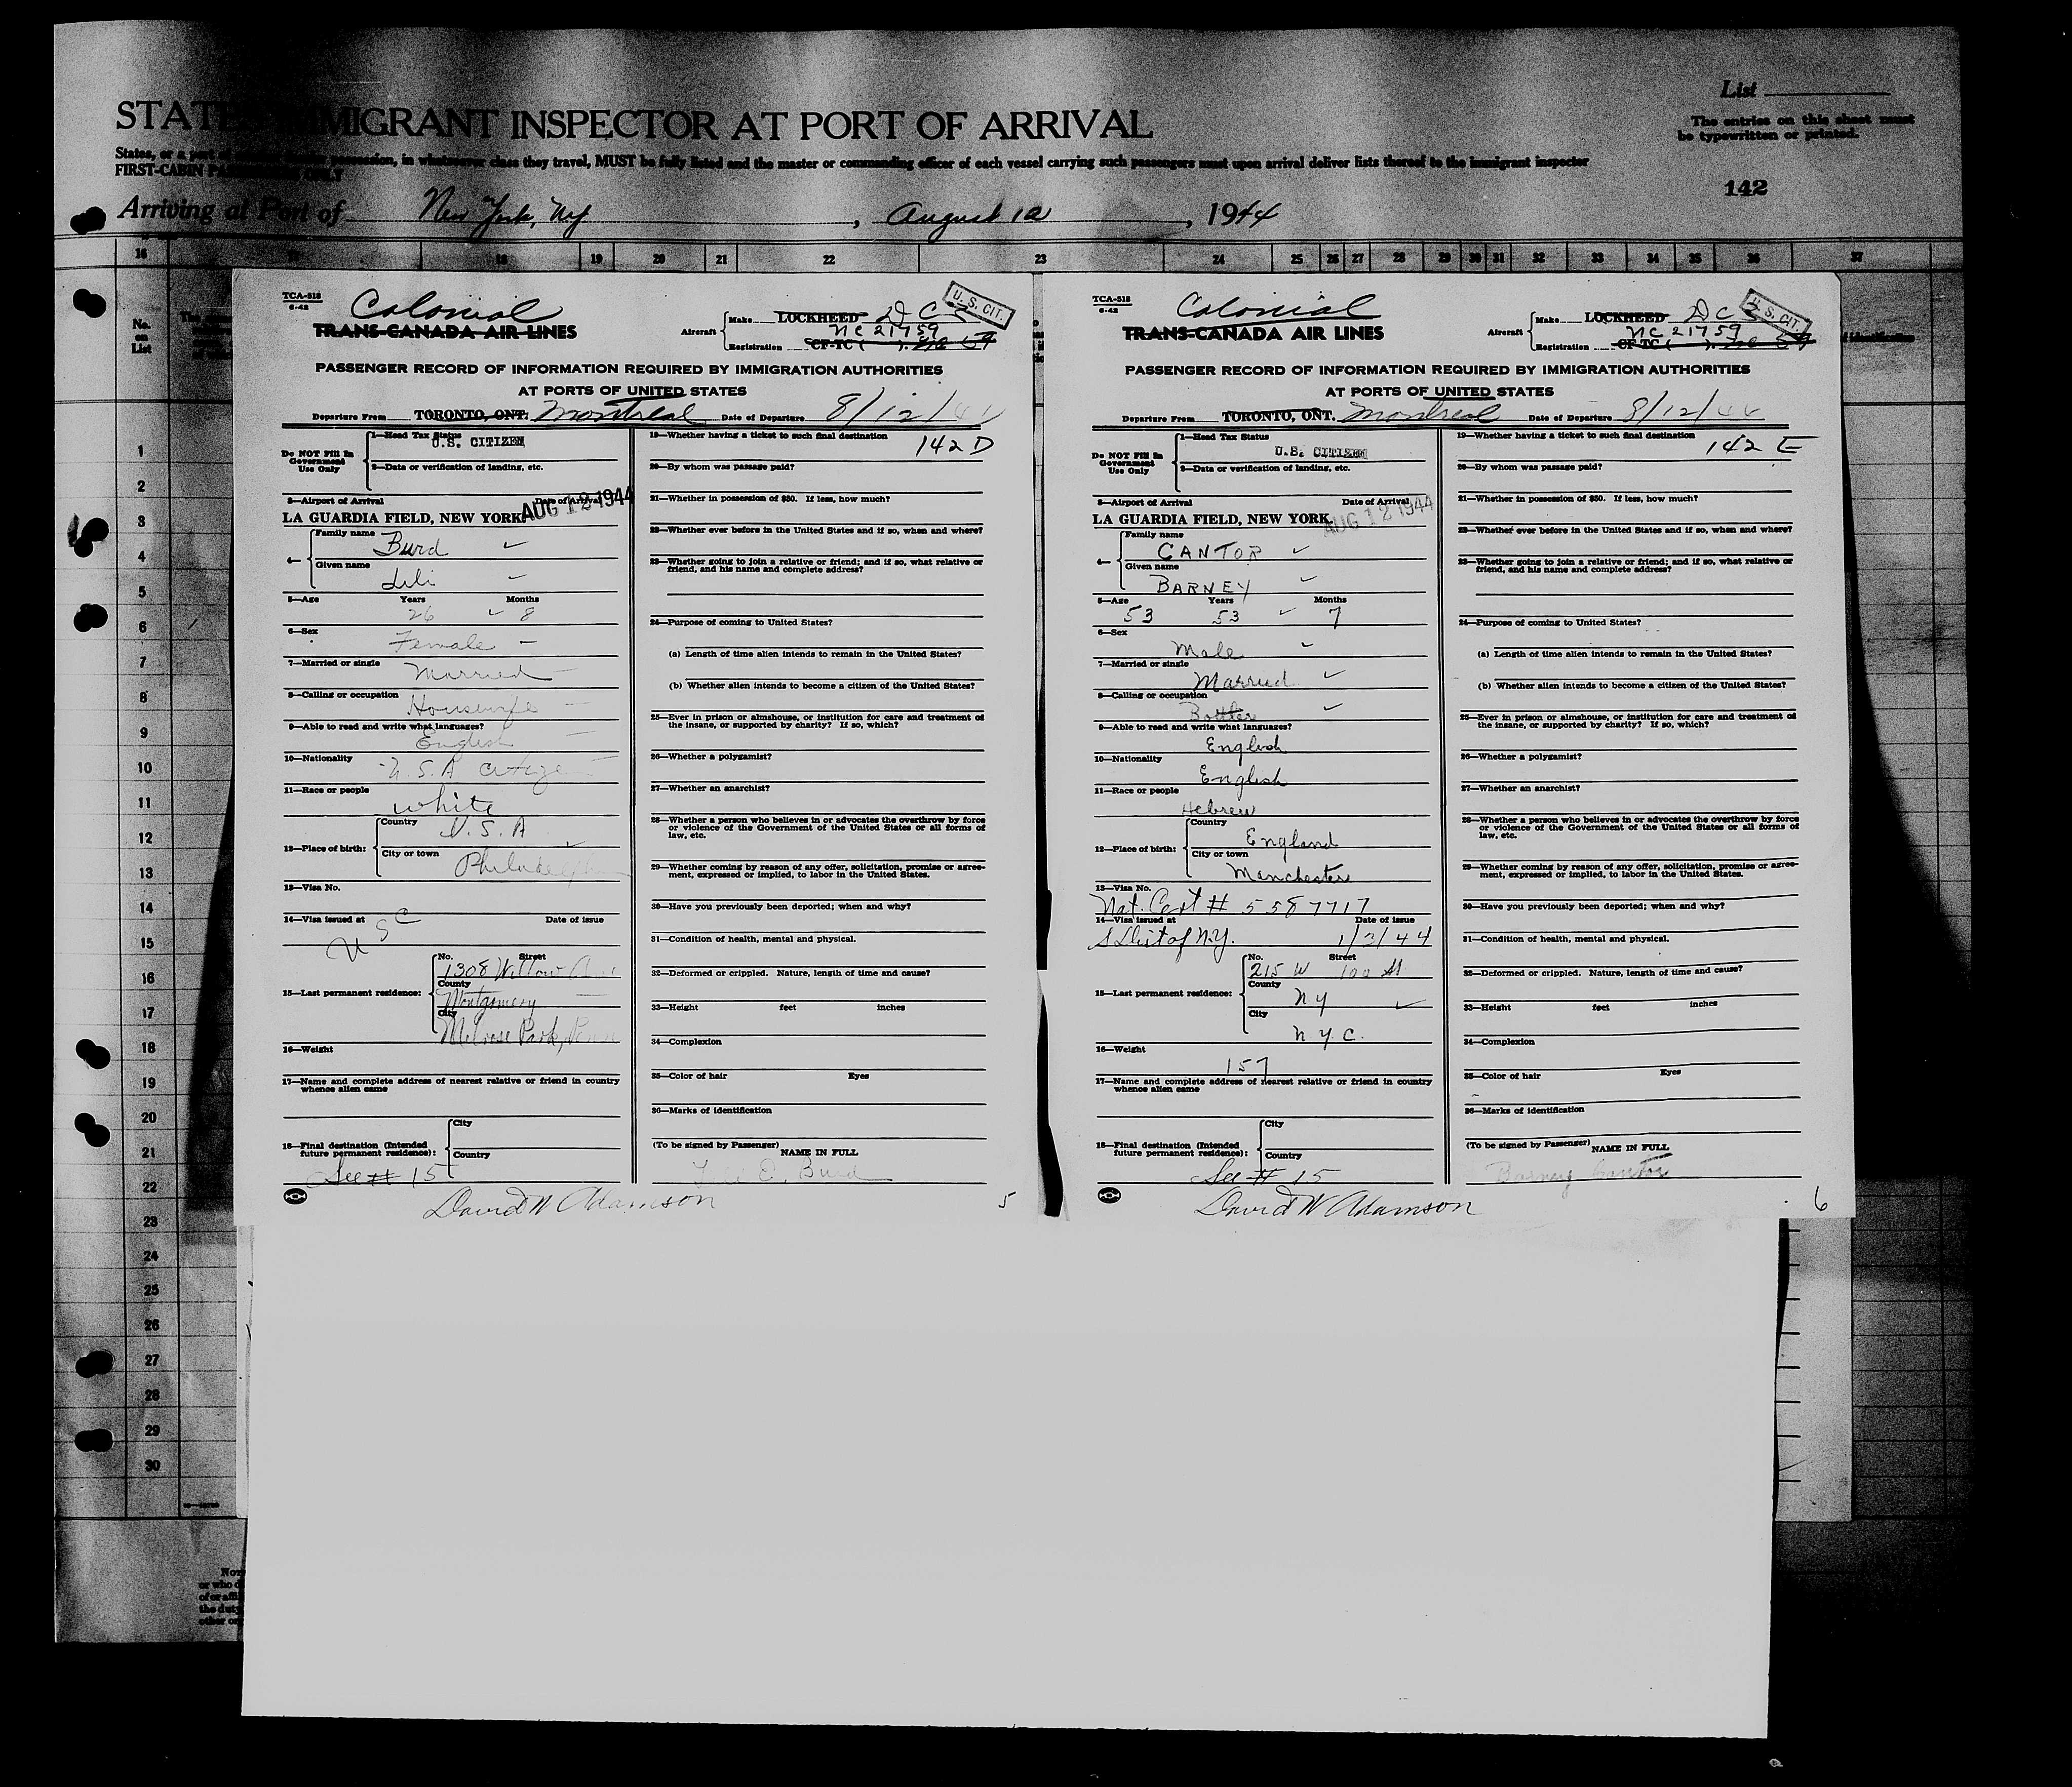 List
The entries on this sheet must
be typewritten or printed.
142
STATES IMMIGRANT INSPECTOR AT PORT OF ARRIVAL
States, or a port of possession, in whatsoever class they travel, MUST be fully listed and the master or commanding officer of each vessel carrying such passengers must upon arrival deliver lists thereof to the immigrant inspector
FIRST-CABIN PASSENGERS ONLY
Arriving at Port of New York, NY, August 12, 1944
16 17 18 19 20 21 22 23 24 25 26 27 28 29 30 31 32 33 34 35 36 37
No.
on
List
1
2
3
4
5
6
7
8
9
10
11
12
13
14
15
16
17
18
19
20
21
22
23
24
25
26
27
28
29
30
TCA-518
6-42
Colonial
TRANS-CANADA AIR LINES
Aircraft
Make LOCKHEED DC 3
NC 21759
Registration CF-TC ( ).
U.S. CIT.
PASSENGER RECORD OF INFORMATION REQUIRED BY IMMIGRATION AUTHORITIES
AT PORTS OF UNITED STATES
Departure From TORONTO, ONT. Montreal Date of Departure 8/12/44
Do NOT Fill In
Government
Use Only
1—Head Tax Status
U.S. CITIZEN
2—Data or verification of landing, etc.
3—Airport of Arrival Date of Arrival
LA GUARDIA FIELD, NEW YORK AUG 12 1944
4—
Family name
Burd
Given name
Lili
5—Age Years Months
26 8
6—Sex
Female
7—Married or single
Married
8—Calling or occupation
Housewife
9—Able to read and write what languages?
English
10—Nationality
U.S.A citizen
11—Race or people
white
12—Place of birth:
Country
U.S.A
City or town
Philadelphia
13—Visa No.
14—Visa issued at Date of issue
USC
15—Last permanent residence:
No. Street
1308 Willow Ave
County
Montgomery
City
Melrose Park, Penn
16—Weight
17—Name and complete address of nearest relative or friend in country
whence alien came
18—Final destination (Intended
future permanent residence):
City
Country
See # 15
19—Whether having a ticket to such final destination
142 D
20—By whom was passage paid?
21—Whether in possession of $50. If less, how much?
22—Whether ever before in the United States and if so, when and where?
23—Whether going to join a relative or friend; and if so, what relative or
friend, and his name and complete address?
24—Purpose of coming to United States?
(a) Length of time alien intends to remain in the United States?
(b) Whether alien intends to become a citizen of the United States?
25—Ever in prison or almshouse, or institution for care and treatment of
the insane, or supported by charity? If so, which?
26—Whether a polygamist?
27—Whether an anarchist?
28—Whether a person who believes in or advocates the overthrow by force
or violence of the Government of the United States or all forms of
law, etc.
29—Whether coming by reason of any offer, solicitation, promise or agree-
ment, expressed or implied, to labor in the United States.
30—Have you previously been deported; when and why?
31—Condition of health, mental and physical.
32—Deformed or crippled. Nature, length of time and cause?
33—Height feet inches
34—Complexion
35—Color of hair Eyes
36—Marks of identification
(To be signed by Passenger) NAME IN FULL
Lili D. Burd
David W Adamson
5
TCA-518
6-42
Colonial
TRANS-CANADA AIR LINES
Aircraft
Make LOCKHEED DC 3
NC 21759
Registration CF-TC ( ).
U.S. CIT.
PASSENGER RECORD OF INFORMATION REQUIRED BY IMMIGRATION AUTHORITIES
AT PORTS OF UNITED STATES
Departure From TORONTO, ONT. Montreal Date of Departure 8/12/44
Do NOT Fill In
Government
Use Only
1—Head Tax Status
U.S. CITIZEN
2—Data or verification of landing, etc.
3—Airport of Arrival Date of Arrival
LA GUARDIA FIELD, NEW YORK AUG 12 1944
4—
Family name
CANTOR
Given name
BARNEY
5—Age Years Months
53 53 7
6—Sex
Male
7—Married or single
Married
8—Calling or occupation
Bottler
9—Able to read and write what languages?
English
10—Nationality
English
11—Race or people
Hebrew
12—Place of birth:
Country
England
City or town
Manchester
13—Visa No.
Nat. Cert # 5587717
14—Visa issued at Date of issue
S Dist of N.Y. 1/3/44
15—Last permanent residence:
No. Street
215 W 100 St
County
N Y
City
N.Y.C.
16—Weight
157
17—Name and complete address of nearest relative or friend in country
whence alien came
18—Final destination (Intended
future permanent residence):
City
Country
See # 15
19—Whether having a ticket to such final destination
142 E
20—By whom was passage paid?
21—Whether in possession of $50. If less, how much?
22—Whether ever before in the United States and if so, when and where?
23—Whether going to join a relative or friend; and if so, what relative or
friend, and his name and complete address?
24—Purpose of coming to United States?
(a) Length of time alien intends to remain in the United States?
(b) Whether alien intends to become a citizen of the United States?
25—Ever in prison or almshouse, or institution for care and treatment of
the insane, or supported by charity? If so, which?
26—Whether a polygamist?
27—Whether an anarchist?
28—Whether a person who believes in or advocates the overthrow by force
or violence of the Government of the United States or all forms of
law, etc.
29—Whether coming by reason of any offer, solicitation, promise or agree-
ment, expressed or implied, to labor in the United States.
30—Have you previously been deported; when and why?
31—Condition of health, mental and physical.
32—Deformed or crippled. Nature, length of time and cause?
33—Height feet inches
34—Complexion
35—Color of hair Eyes
36—Marks of identification
(To be signed by Passenger) NAME IN FULL
Barney Cantor
David W Adamson
6